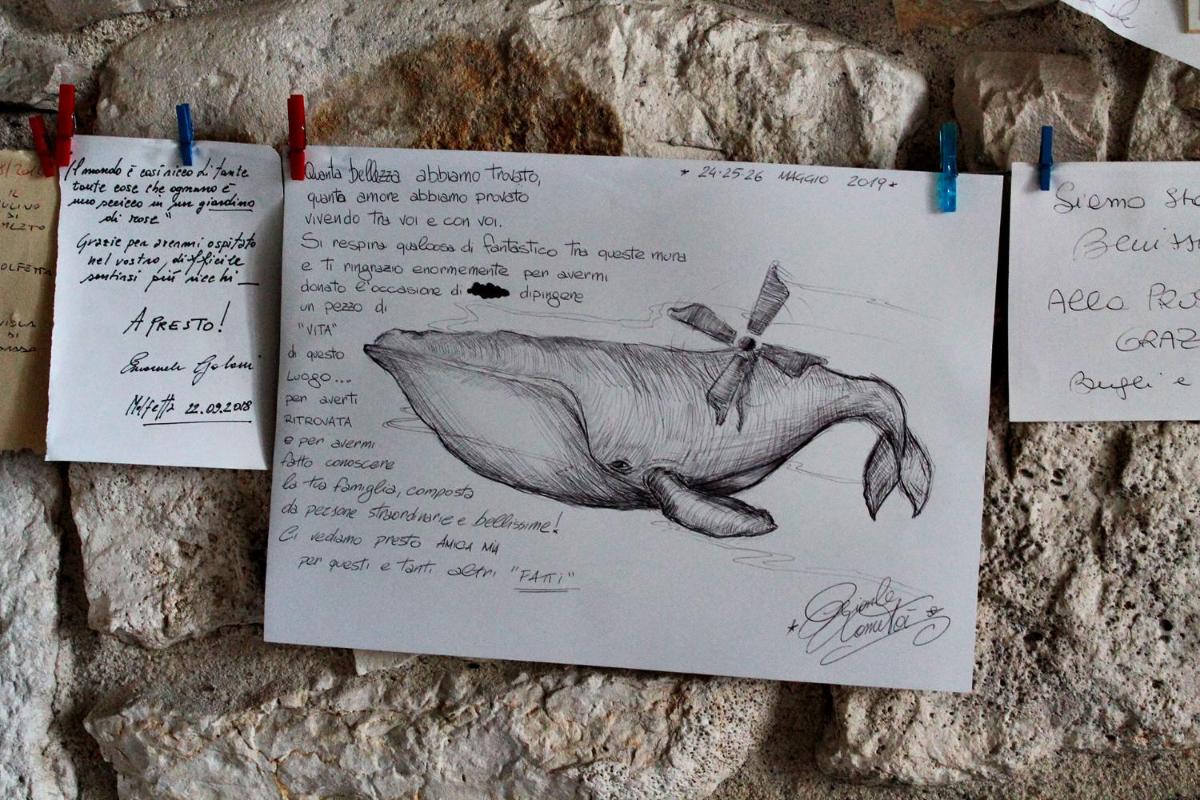 IL
DI
"Il mondo è così ricco di tante
tante cose che ognuno è
uno sceicco in un giardino
di rose"
Grazie per avermi ospitato
nel vostro, difficile
sentirsi più ricchi
A PRESTO!
Molfetta 22.09.2018
Quanta bellezza abbiamo trovato,
quanto amore abbiamo provato
vivendo tra voi e con voi.
Si respira qualcosa di fantastico tra queste mura
e ti ringrazio enormemente per avermi
donato l'occasione di dipingere
un pezzo di
"VITA"
di questo
LUOGO...
per averti
RITROVATA
e per avermi
fatto conoscere
la tua famiglia, composta
da persone straordinarie e bellissime!
Ci vediamo presto AMICA MIA
per questi e tanti altri "FATTI"
* 24.25.26 MAGGIO 2019 *
Siamo sta
Beniss
Alla Pro
GRAZ
e